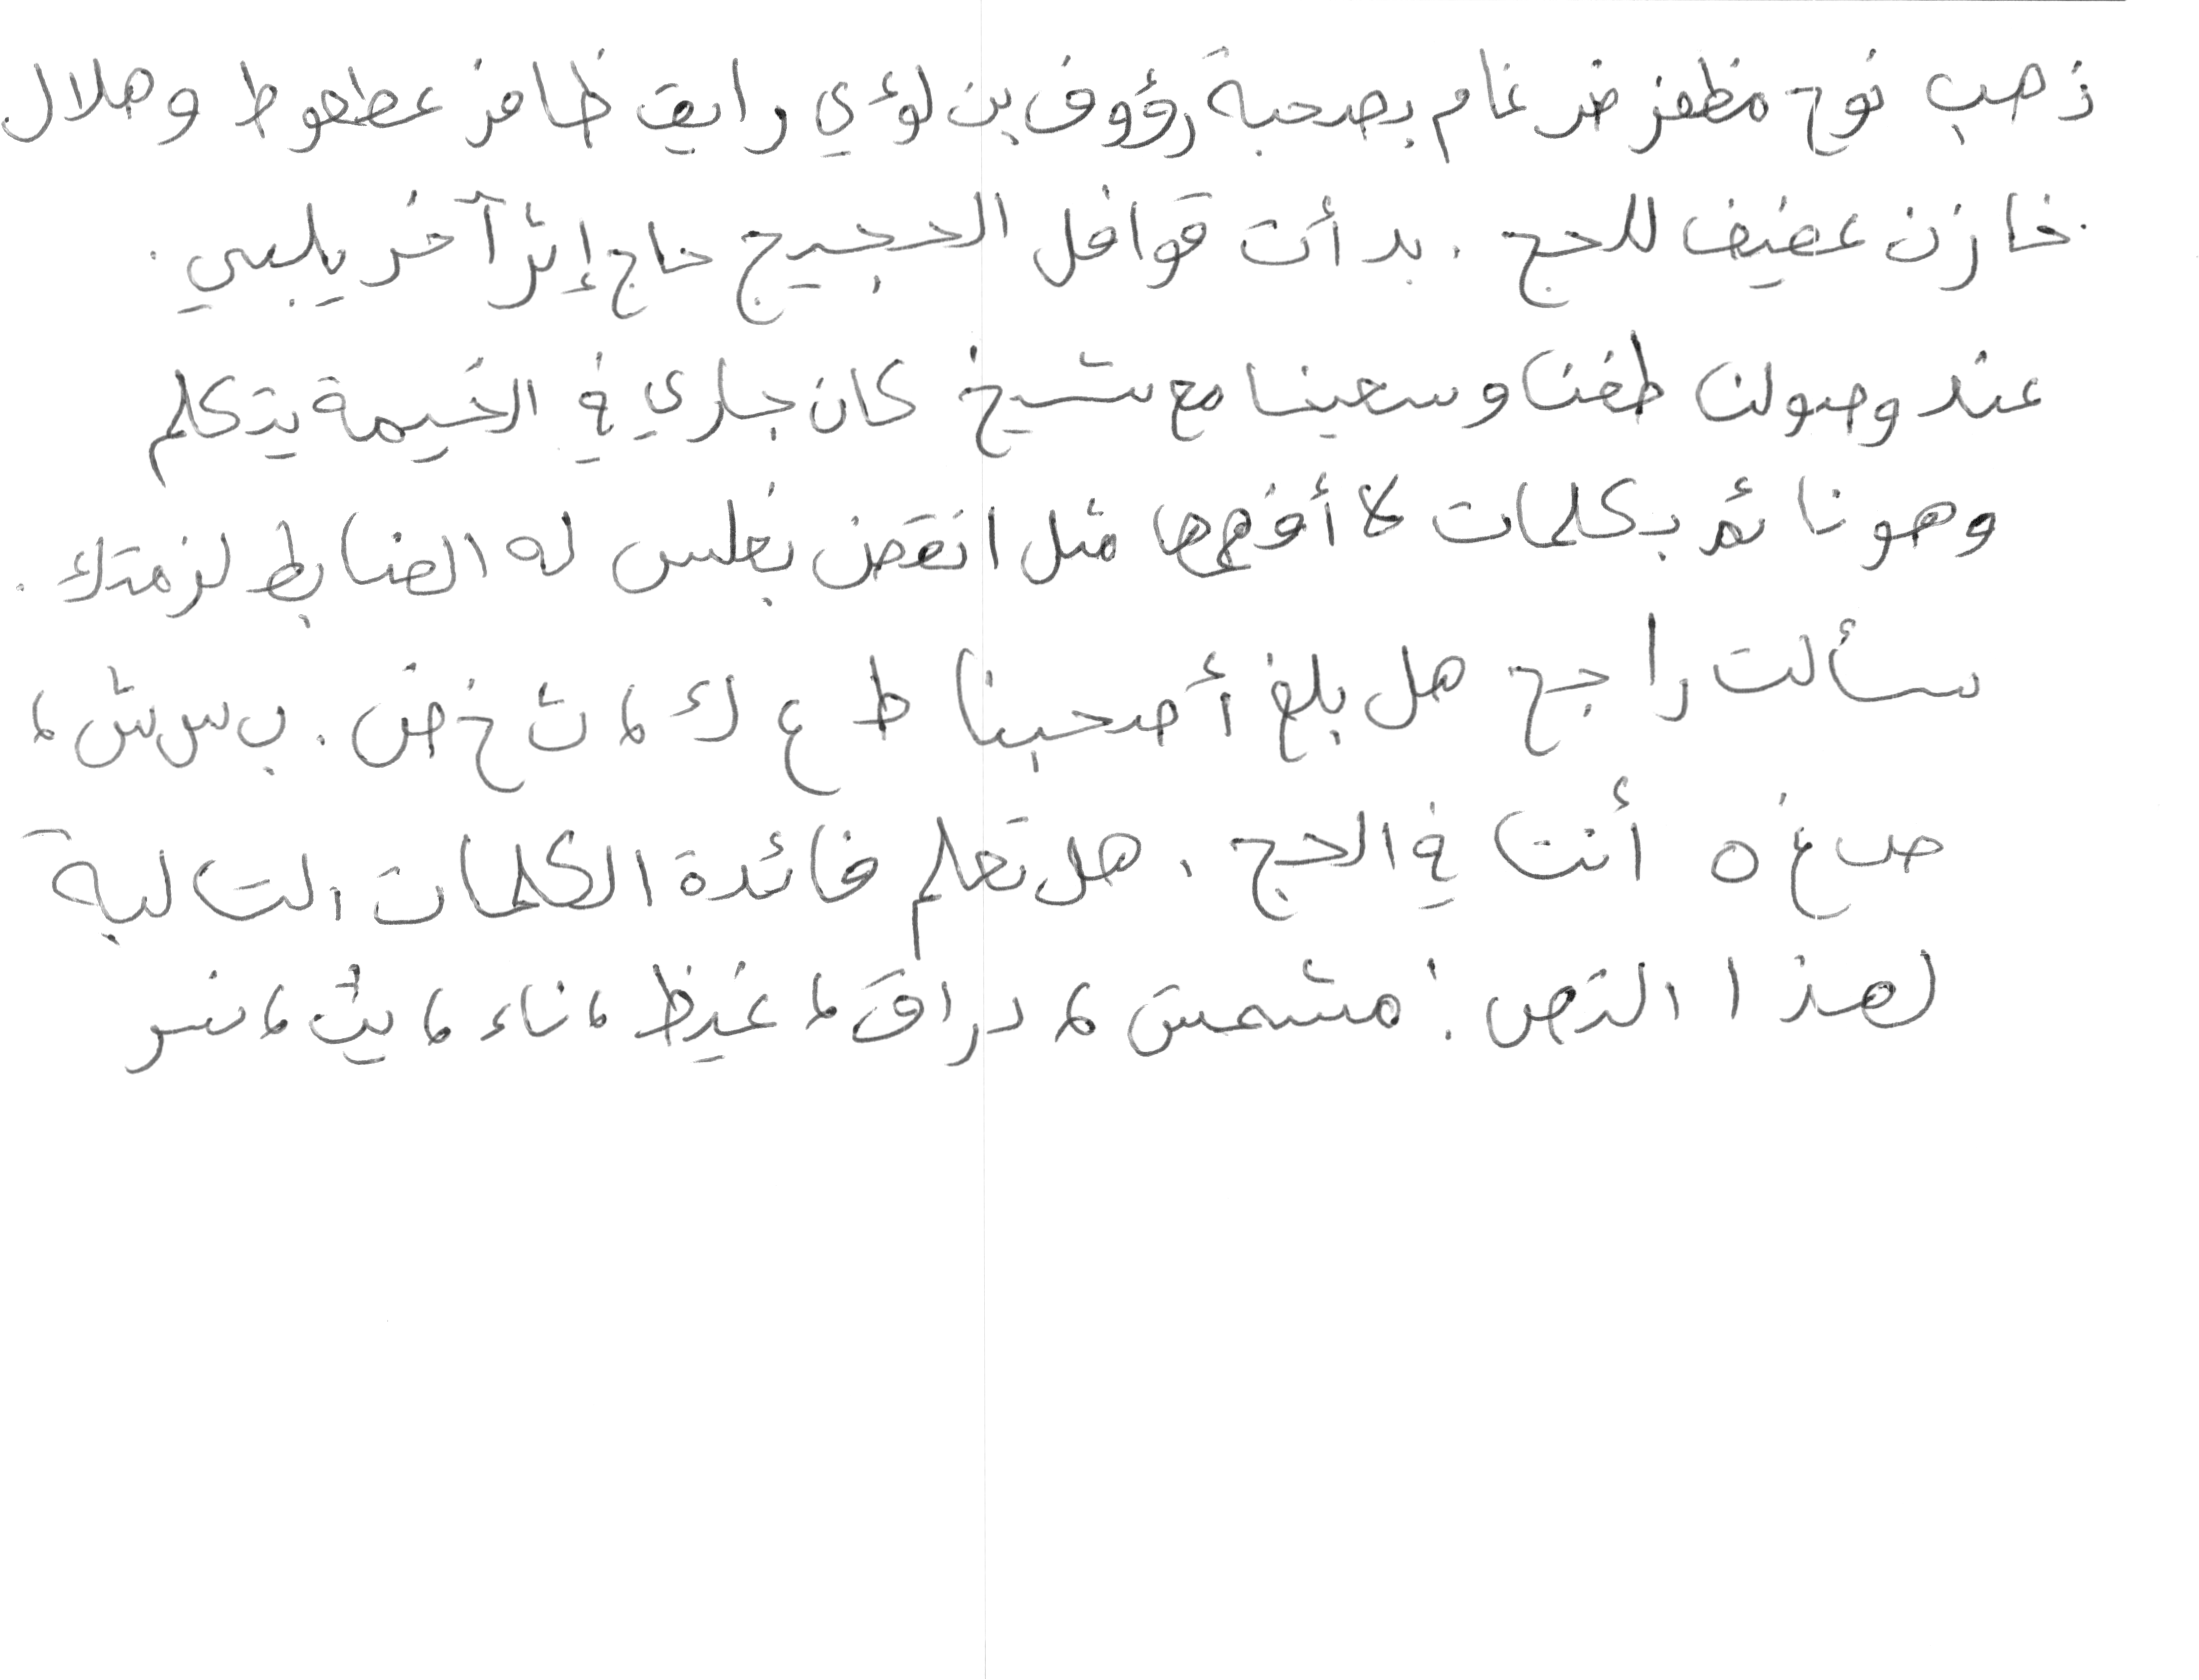 ذهب نوح مظفر ضرغام بصحبة رؤوف بن لؤي رايق ظافر عطعوط وهلال
خازن عفيف للحج . بدأت قوافل الحجيج حاج إثر آخر يلبي .
عند وصولنا طفنا وسعينا مع شيخ كان جاري في الخيمة يتكلم
وهو نائم بكلمات لا أفهمها مثل انقض بغلس له الضابط لزمتك .
سألت راجح هل بلغ أصحبنا ط ع ك ، ث خ ض . ب س ش ،
ص غ ه أنت في الحج ، هل تعلم فائدة الكلمات التالية
لهذا النص : مشمش ، دراق ، غيظ ، ناء ، يث ، نسر